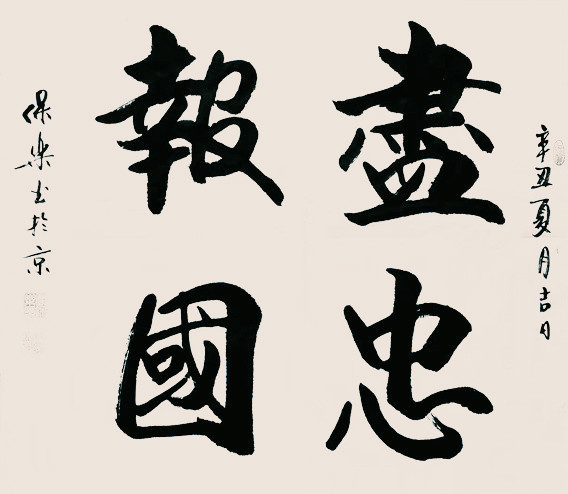 辛丑夏月吉日
盡忠
報國
保樂书於京